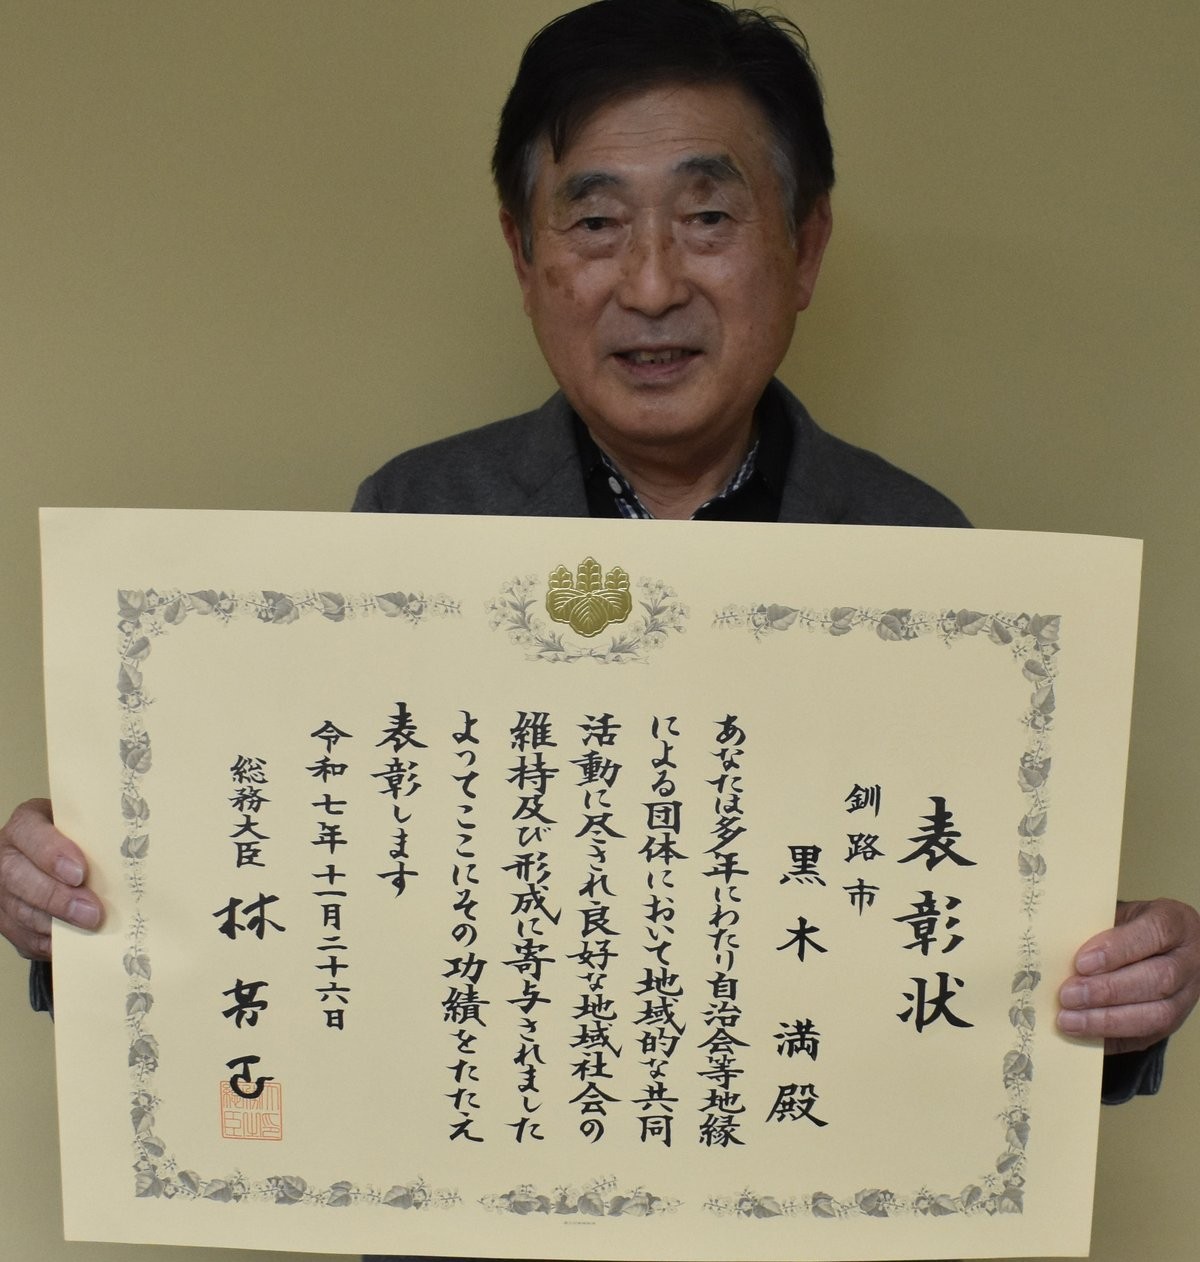 表彰状
釧路市
黒木満殿
あなたは多年にわたり自治会等地縁
による団体において地域的な共同
活動に尽され良好な地域社会の
維持及び形成に寄与されました
よってここにその功績をたたえ
表彰します
令和七年十一月二十六日
総務大臣 林芳正